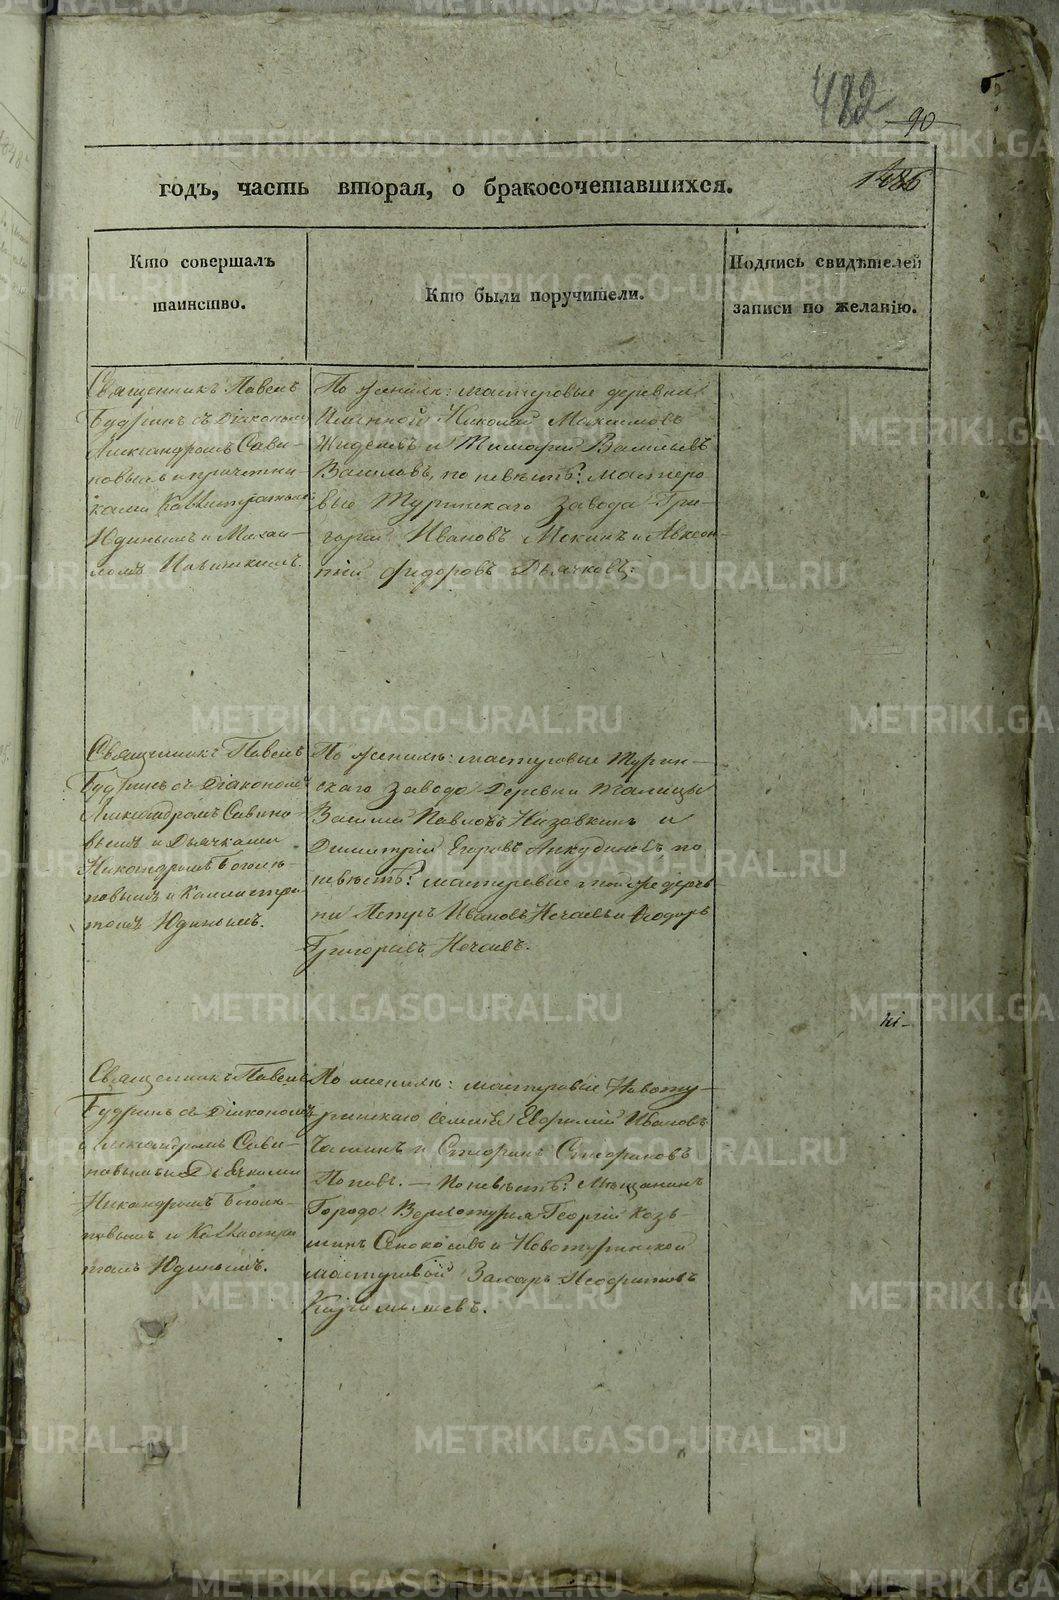 482
90
1486
годъ, часть вторая, о бракосочетавшихся.
Кто совершалъ
таинство.
Кто были поручители.
Подпись свидѣтелей
записи по желанію.
Священникъ Павелъ
Будринъ съ Діакономъ
Александромъ Сави-
новымъ и причетни-
ками Каллистратомъ
Юдинымъ и Михаи-
ломъ
По женихѣ: мастеровые деревни
Именной Николай Максимовъ
и Тимофей Васильевъ
Васильевъ, по невѣстѣ: мастеро
вые Туринскаго завода Гри-
горій Ивановъ Мокинъ и Авксен-
тій Федоровъ Дьячковъ.
Священникъ Павелъ
Будринъ съ Діакономъ
Александромъ Савино-
вымъ и Дьячками
Никандромъ Боголю-
повымъ и Каллистра
томъ Юдинымъ.
По женихѣ: мастеровые Турин-
скаго завода Деревни Талицы
Василій Павловъ Низовкинъ и
Димитрій Егоровъ Анкудиновъ по
невѣстѣ: мастеровые той же дерев
ни Петръ Ивановъ Нечаевъ и Ѳеодоръ
Григорьевъ Нечаевъ.
Священникъ Павелъ
Будринъ съ Діакономъ
Александромъ Сави-
новымъ и Дьячками
Никандромъ Боголю-
повымъ и Каллистра
томъ Юдинымъ.
По женихѣ: мастеровые Новоту-
ринскаго селенія Евфимій Ивановъ
и Стефанъ Стефановъ
Поповъ. — По невѣстѣ: Мѣщанинъ
Города Верхотурья Георгій Козь-
минъ и Новотуринской
мастеровой Захаръ Неофитовъ
METRIKI.GASO-URAL.RU